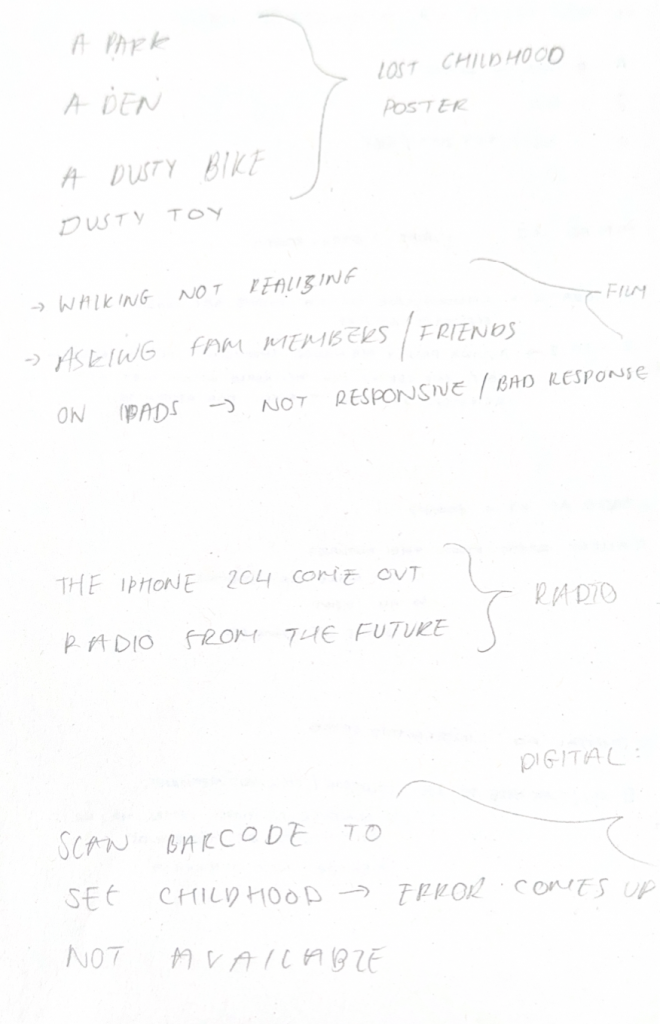 A PARK
A DEN
A DUSTY BIKE
DUSTY TOY
LOST CHILDHOOD
POSTER
→ WALKING NOT REALIZING
→ ASKING FAM MEMBERS / FRIENDS
ON IPADS → NOT RESPONSIVE / BAD RESPONSE
FILM
THE IPHONE 204 COME OUT
RADIO FROM THE FUTURE
RADIO
DIGITAL:
SCAN BARCODE TO
SEE CHILDHOOD → ERROR COMES UP
NOT AVAILABLE